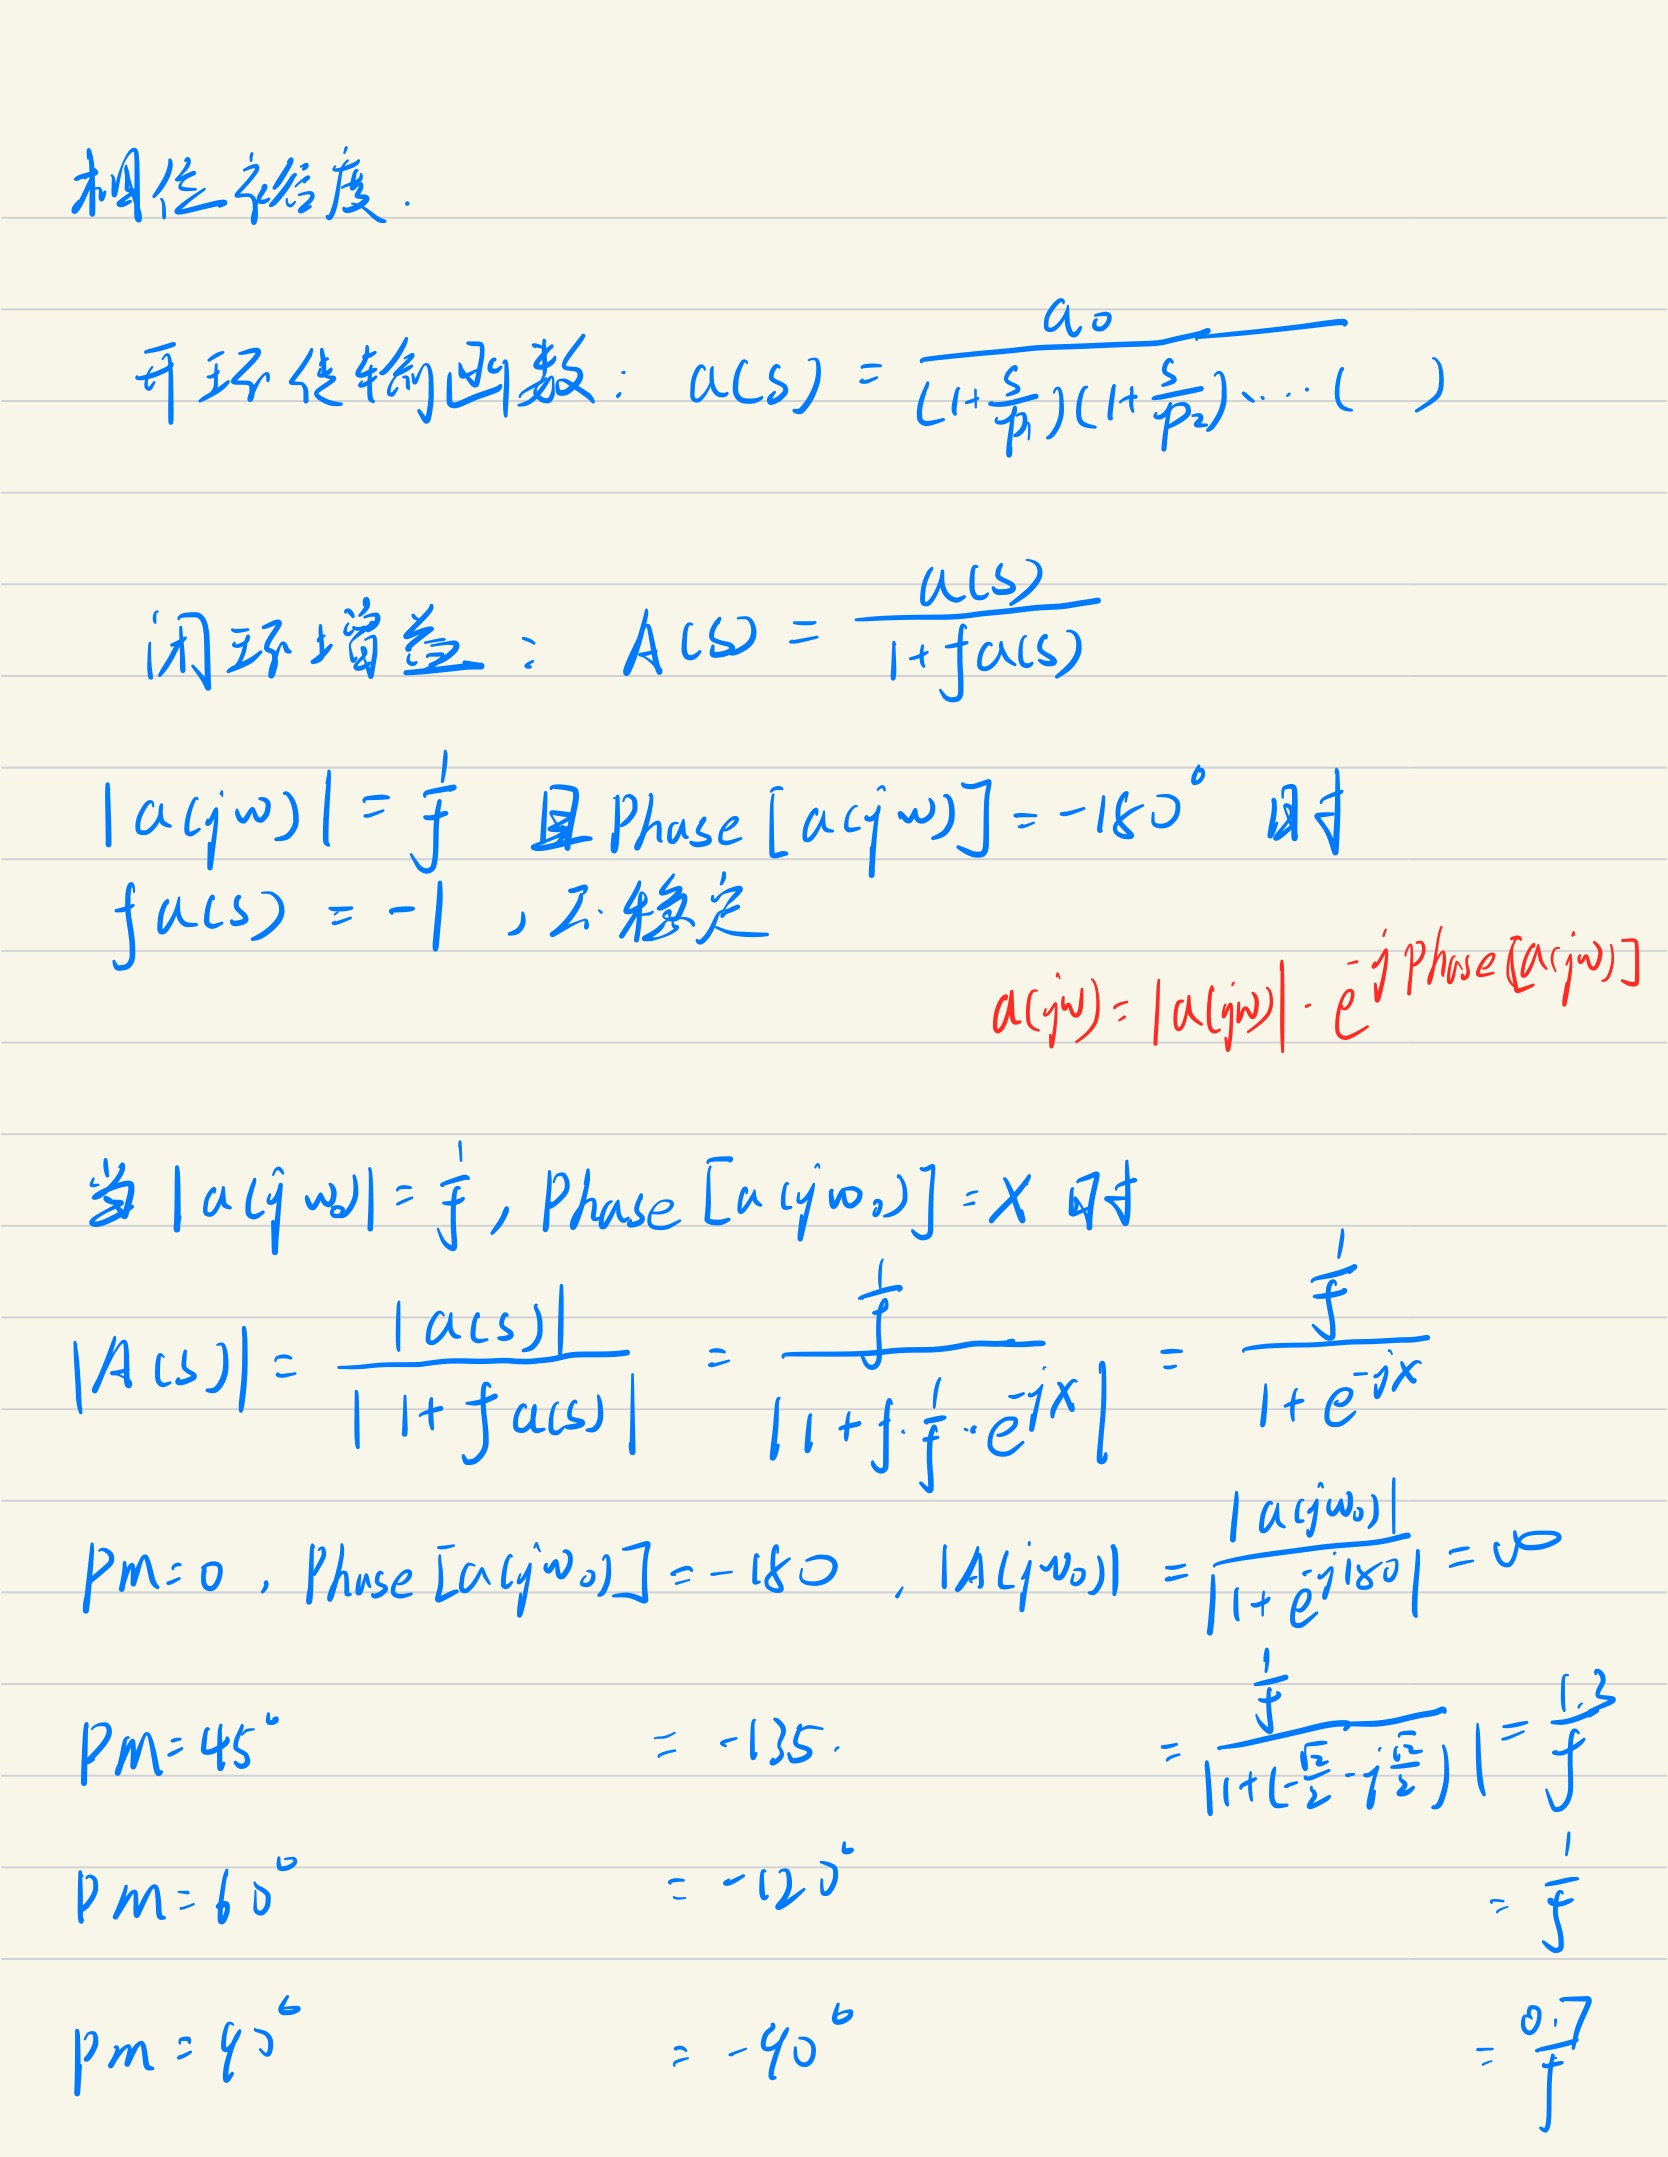 相位裕度.
开环传输函数: a(s) = a₀ / (1+s/p₁)(1+s/p₂)·····( )
闭环增益: A(s) = a(s) / 1+fa(s)
|a(jω)| = 1/f 且 Phase[a(jω)] = -180° 时
fa(s) = -1 , 不稳定
a(jω) = |a(jω)| · e^-jPhase[a(jω)]
当 |a(jω₀)| = 1/f , Phase[a(jω₀)] = X 时
|A(s)| = |a(s)| / |1+fa(s)| = 1/f / |1+f·1/f·e^-jX| = 1/f / 1+e^-jX
Pm=0 , Phase[a(jω₀)] = -180 , |A(jω₀)| = |a(jω₀)| / |1+e^-j180| = ∞
Pm=45° = -135. = 1/f / |1+(-√2/2-j√2/2)| = 1.3/f
Pm=60° = -120° = 1/f
Pm=90° = -90° = 0.7/f